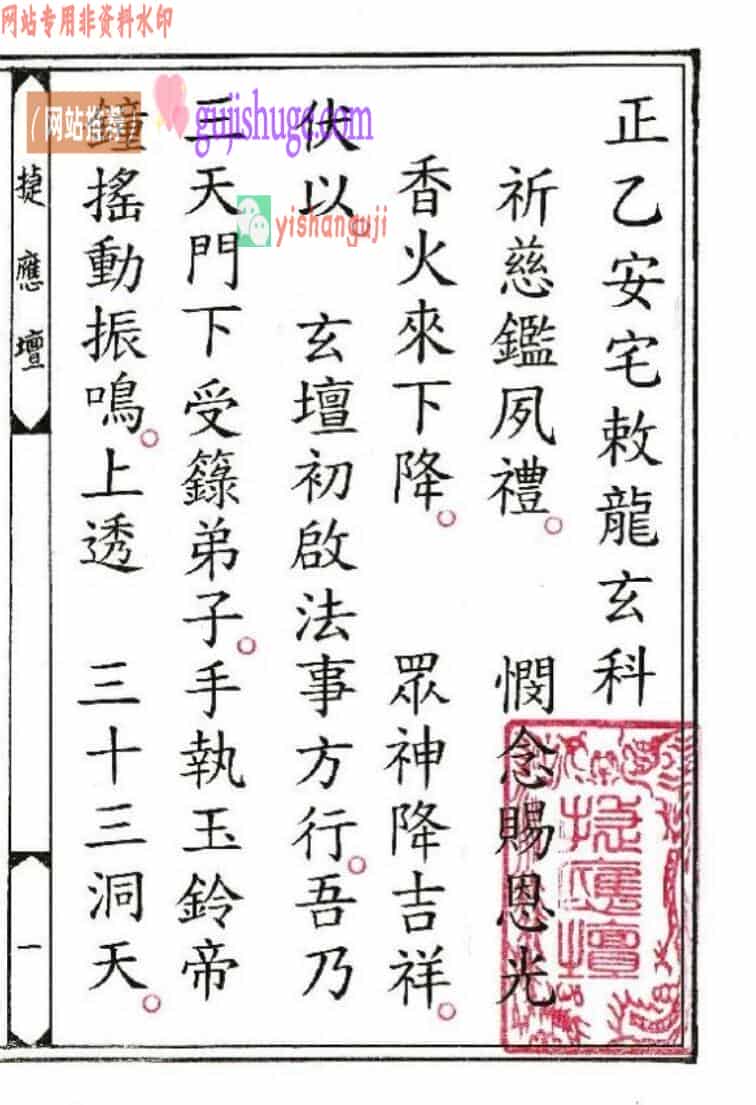 网站专用非资料水印
正乙安宅敕龍玄科
祈慈鑑夙禮。 憫念賜恩光
香火來下降。 眾神降吉祥。
伏以。 玄壇初啟法事方行。吾乃
三天門下受籙弟子。手執玉鈴帝
鐘搖動振鳴。上透 三十三洞天。
捷應壇
一
捷應壇
(网站推荐)
gujishuge.com
yishanguji